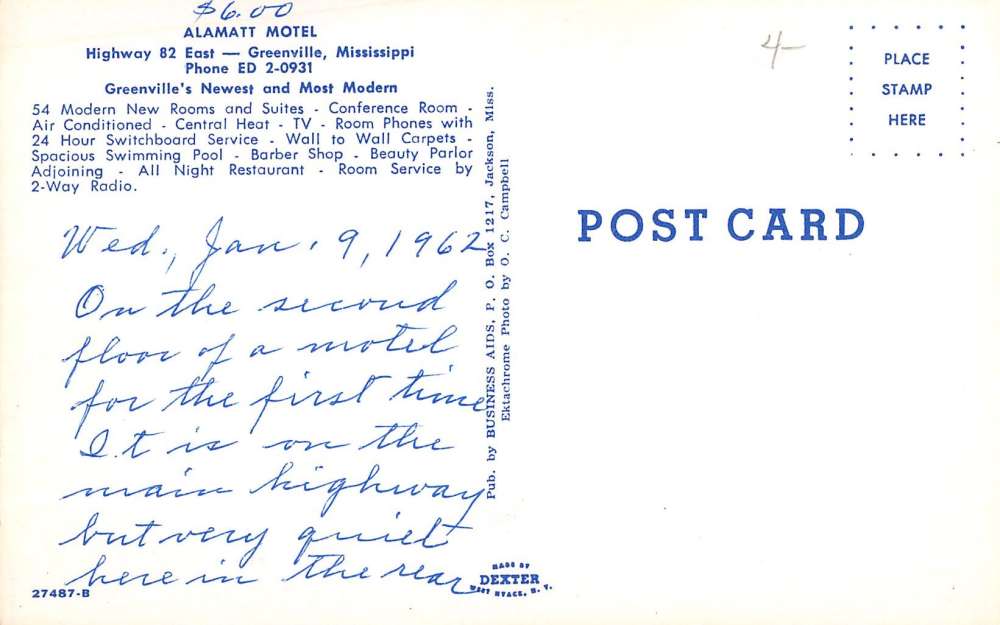 $6.00
ALAMATT MOTEL
Highway 82 East — Greenville, Mississippi
Phone ED 2-0931
Greenville's Newest and Most Modern
54 Modern New Rooms and Suites - Conference Room -
Air Conditioned - Central Heat - TV - Room Phones with
24 Hour Switchboard Service - Wall to Wall Carpets -
Spacious Swimming Pool - Barber Shop - Beauty Parlor
Adjoining - All Night Restaurant - Room Service by
2-Way Radio.
Wed., Jan. 9, 1962
On the second
floor of a motel
for the first time
It is on the
main highway
but very quiet
here in the rear
27487-B
Pub. by BUSINESS AIDS, P. O. Box 1217, Jackson, Miss.
Ektachrome Photo by O. C. Campbell
MADE BY
DEXTER
WEST NYACK, N. Y.
4-
PLACE
STAMP
HERE
POST CARD